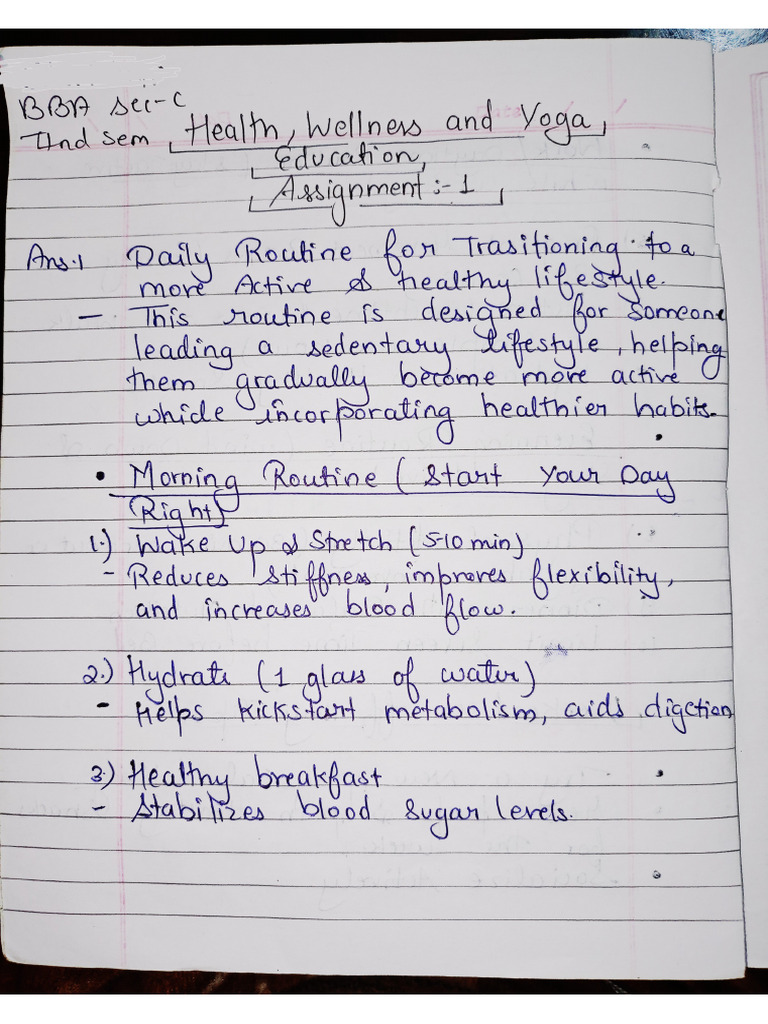 BBA sec-C
IInd sem Health, Wellness and Yoga,
Education,
Assignment :- 1
Ans.1 Daily Routine for Trasitioning to a
more Active & healthy lifestyle.
- This routine is designed for someone
leading a sedentary lifestyle, helping
them gradually become more active
whide incorporating healthier habits.
• Morning Routine ( Start Your Day
Right)
1.) Wake Up & Stretch (5-10 min)
- Reduces stiffness, improves flexibility,
and increases blood flow.
2.) Hydrate (1 glass of water)
- Helps kickstart metabolism, aids digction
3.) Healthy breakfast
- Stabilizes blood sugar levels.